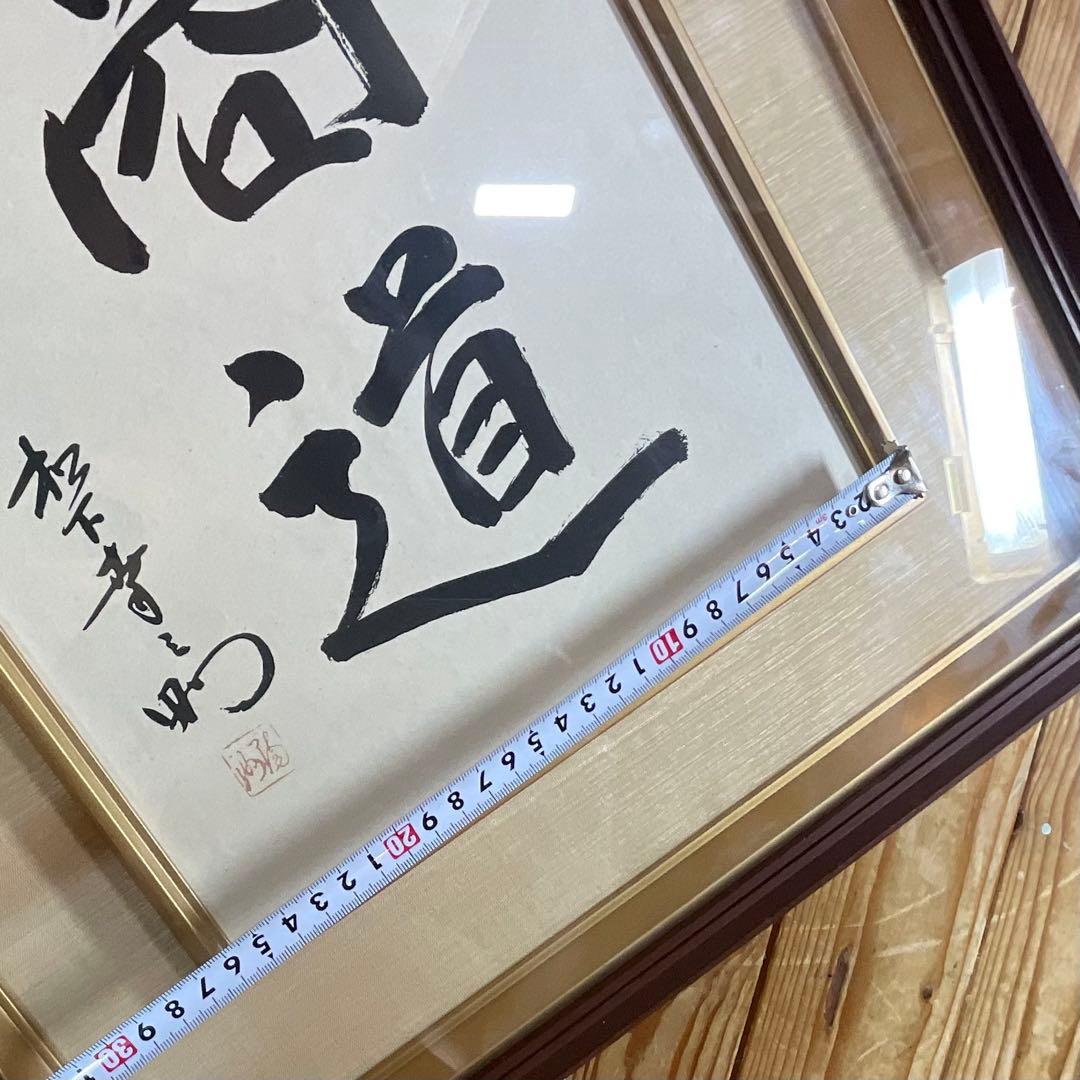 商道
松下幸之助
3m
2 3 4 5 6 7 8 9 10 1 2 3 4 5 6 7 8 9 20 1 2 3 4 5 6 7 8 9 30